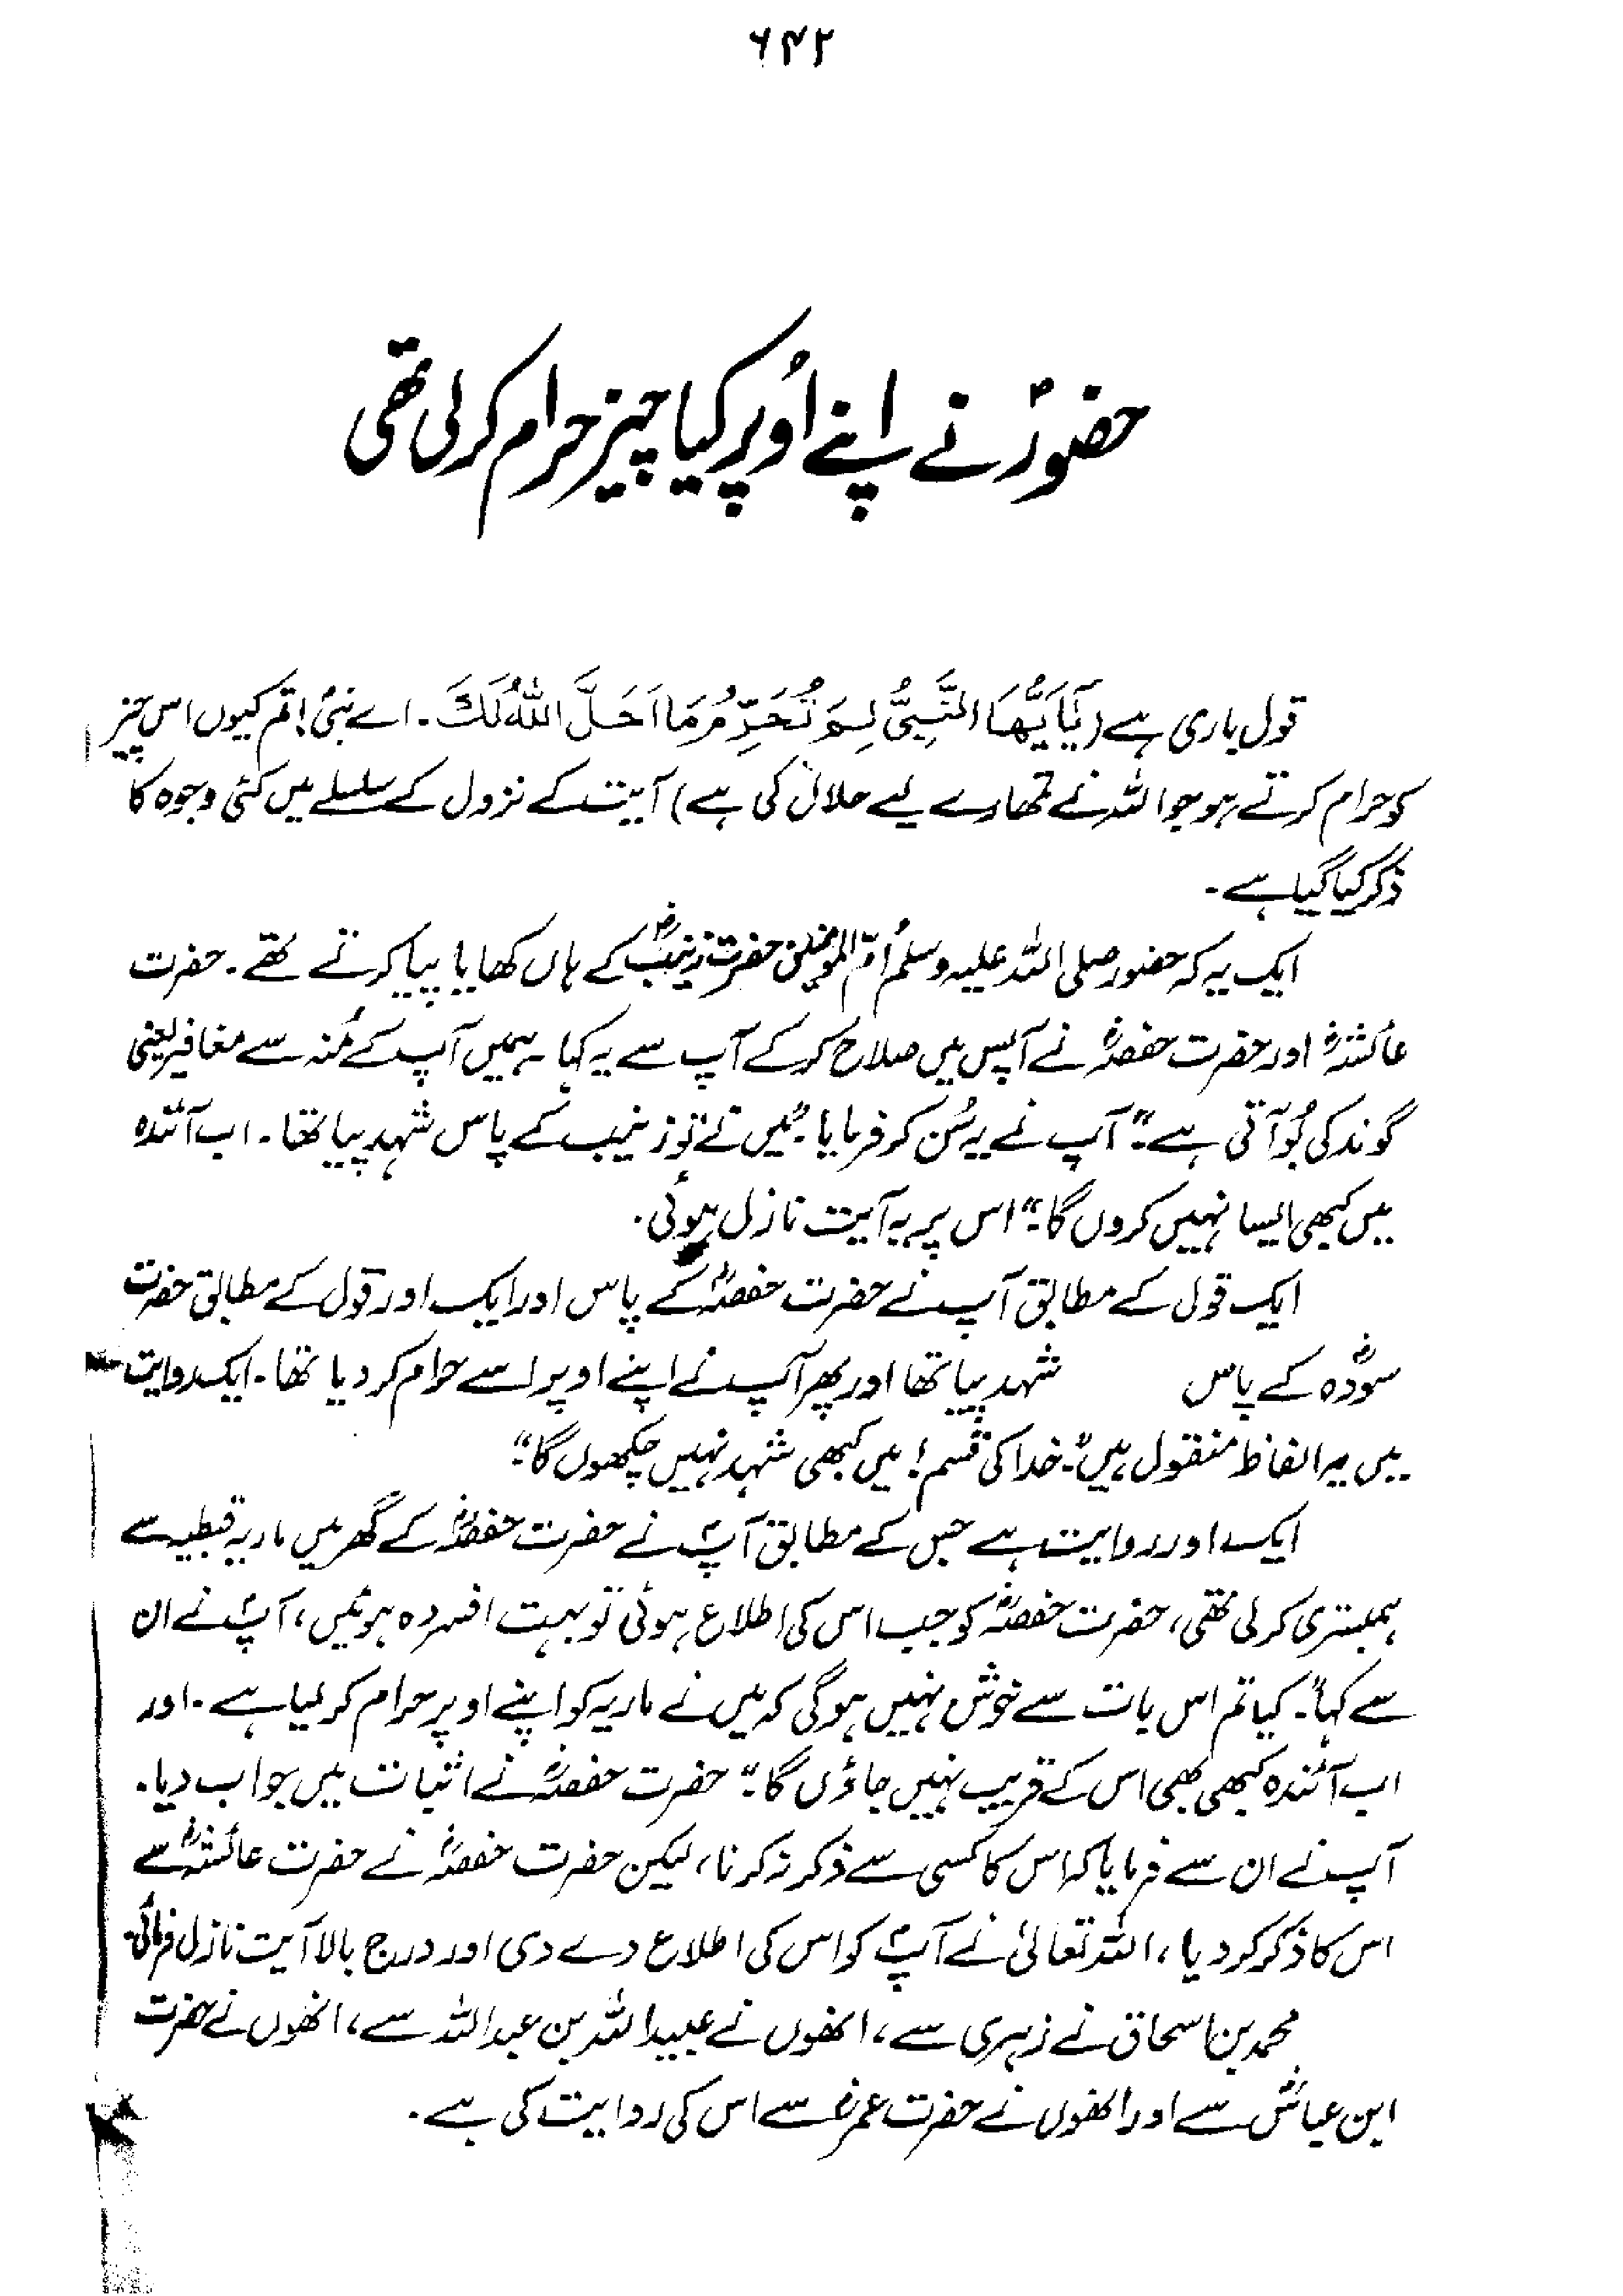 ۶۴۲
حضورؐ نے اپنے اُوپر کیا چیز حرام کر لی تھی
قول باری ہے (يٰۤاَيُّهَا النَّبِيُّ لِمَ تُحَرِّمُ مَا اَحَلَّ اللّٰهُ لَكَ۔ اے نبیؐ! تم کیوں اس چیز
کو حرام کرتے ہو جو اللہ نے تمھارے لیے حلال کی ہے) آیت کے نزول کے سلسلے میں کئی وجوہ کا
ذکر کیا گیا ہے۔
ایک یہ کہ حضور صلی اللہ علیہ وسلم اُمّ المومنین حضرت زینبؓ کے ہاں کھایا پیا کرتے تھے۔ حضرت
عائشہؓ اور حضرت حفصہؓ نے آپس میں صلاح کر کے آپ سے یہ کہا۔ ہمیں آپ کے مُنہ سے مغافیر یعنی
گوند کی بُو آتی ہے۔“ آپ نے یہ سُن کر فرمایا۔ ”میں نے تو زینب کے پاس شہد پیا تھا۔ اب آئندہ
میں کبھی ایسا نہیں کروں گا۔“ اس پر یہ آیت نازل ہوئی۔
ایک قول کے مطابق آپ نے حضرت حفصہؓ کے پاس اور ایک اور قول کے مطابق حضرت
سودہؓ کے پاس شہد پیا تھا اور پھر آپ نے اپنے اوپر اسے حرام کر دیا تھا۔ ایک روایت
میں یہ الفاظ منقول ہیں۔ ”خدا کی قسم! میں کبھی شہد نہیں چکھوں گا۔“
ایک اور روایت ہے جس کے مطابق آپؐ نے حضرت حفصہؓ کے گھر میں ماریہ قبطیہ سے
ہمبستری کر لی تھی، حضرت حفصہؓ کو جب اس کی اطلاع ہوئی تو بہت افسردہ ہوئیں، آپؐ نے ان
سے کہا۔ ”کیا تم اس بات سے خوش نہیں ہو گی کہ میں نے ماریہ کو اپنے اوپر حرام کر لیا ہے۔ اور
اب آئندہ کبھی بھی اس کے قریب نہیں جاؤں گا۔“ حضرت حفصہؓ نے اثبات میں جواب دیا۔
آپ نے ان سے فرمایا کہ اس کا کسی سے ذکر نہ کرنا، لیکن حضرت حفصہؓ نے حضرت عائشہؓ سے
اس کا ذکر کر دیا، اللہ تعالیٰ نے آپؐ کو اس کی اطلاع دے دی اور درج بالا آیت نازل فرمائی۔
محمد بن اسحاق نے زہری سے، انھوں نے عبید اللہ بن عبد اللہ سے، انھوں نے حضرت
ابن عباسؓ سے اور انھوں نے حضرت عمرؓ سے اس کی روایت کی ہے۔